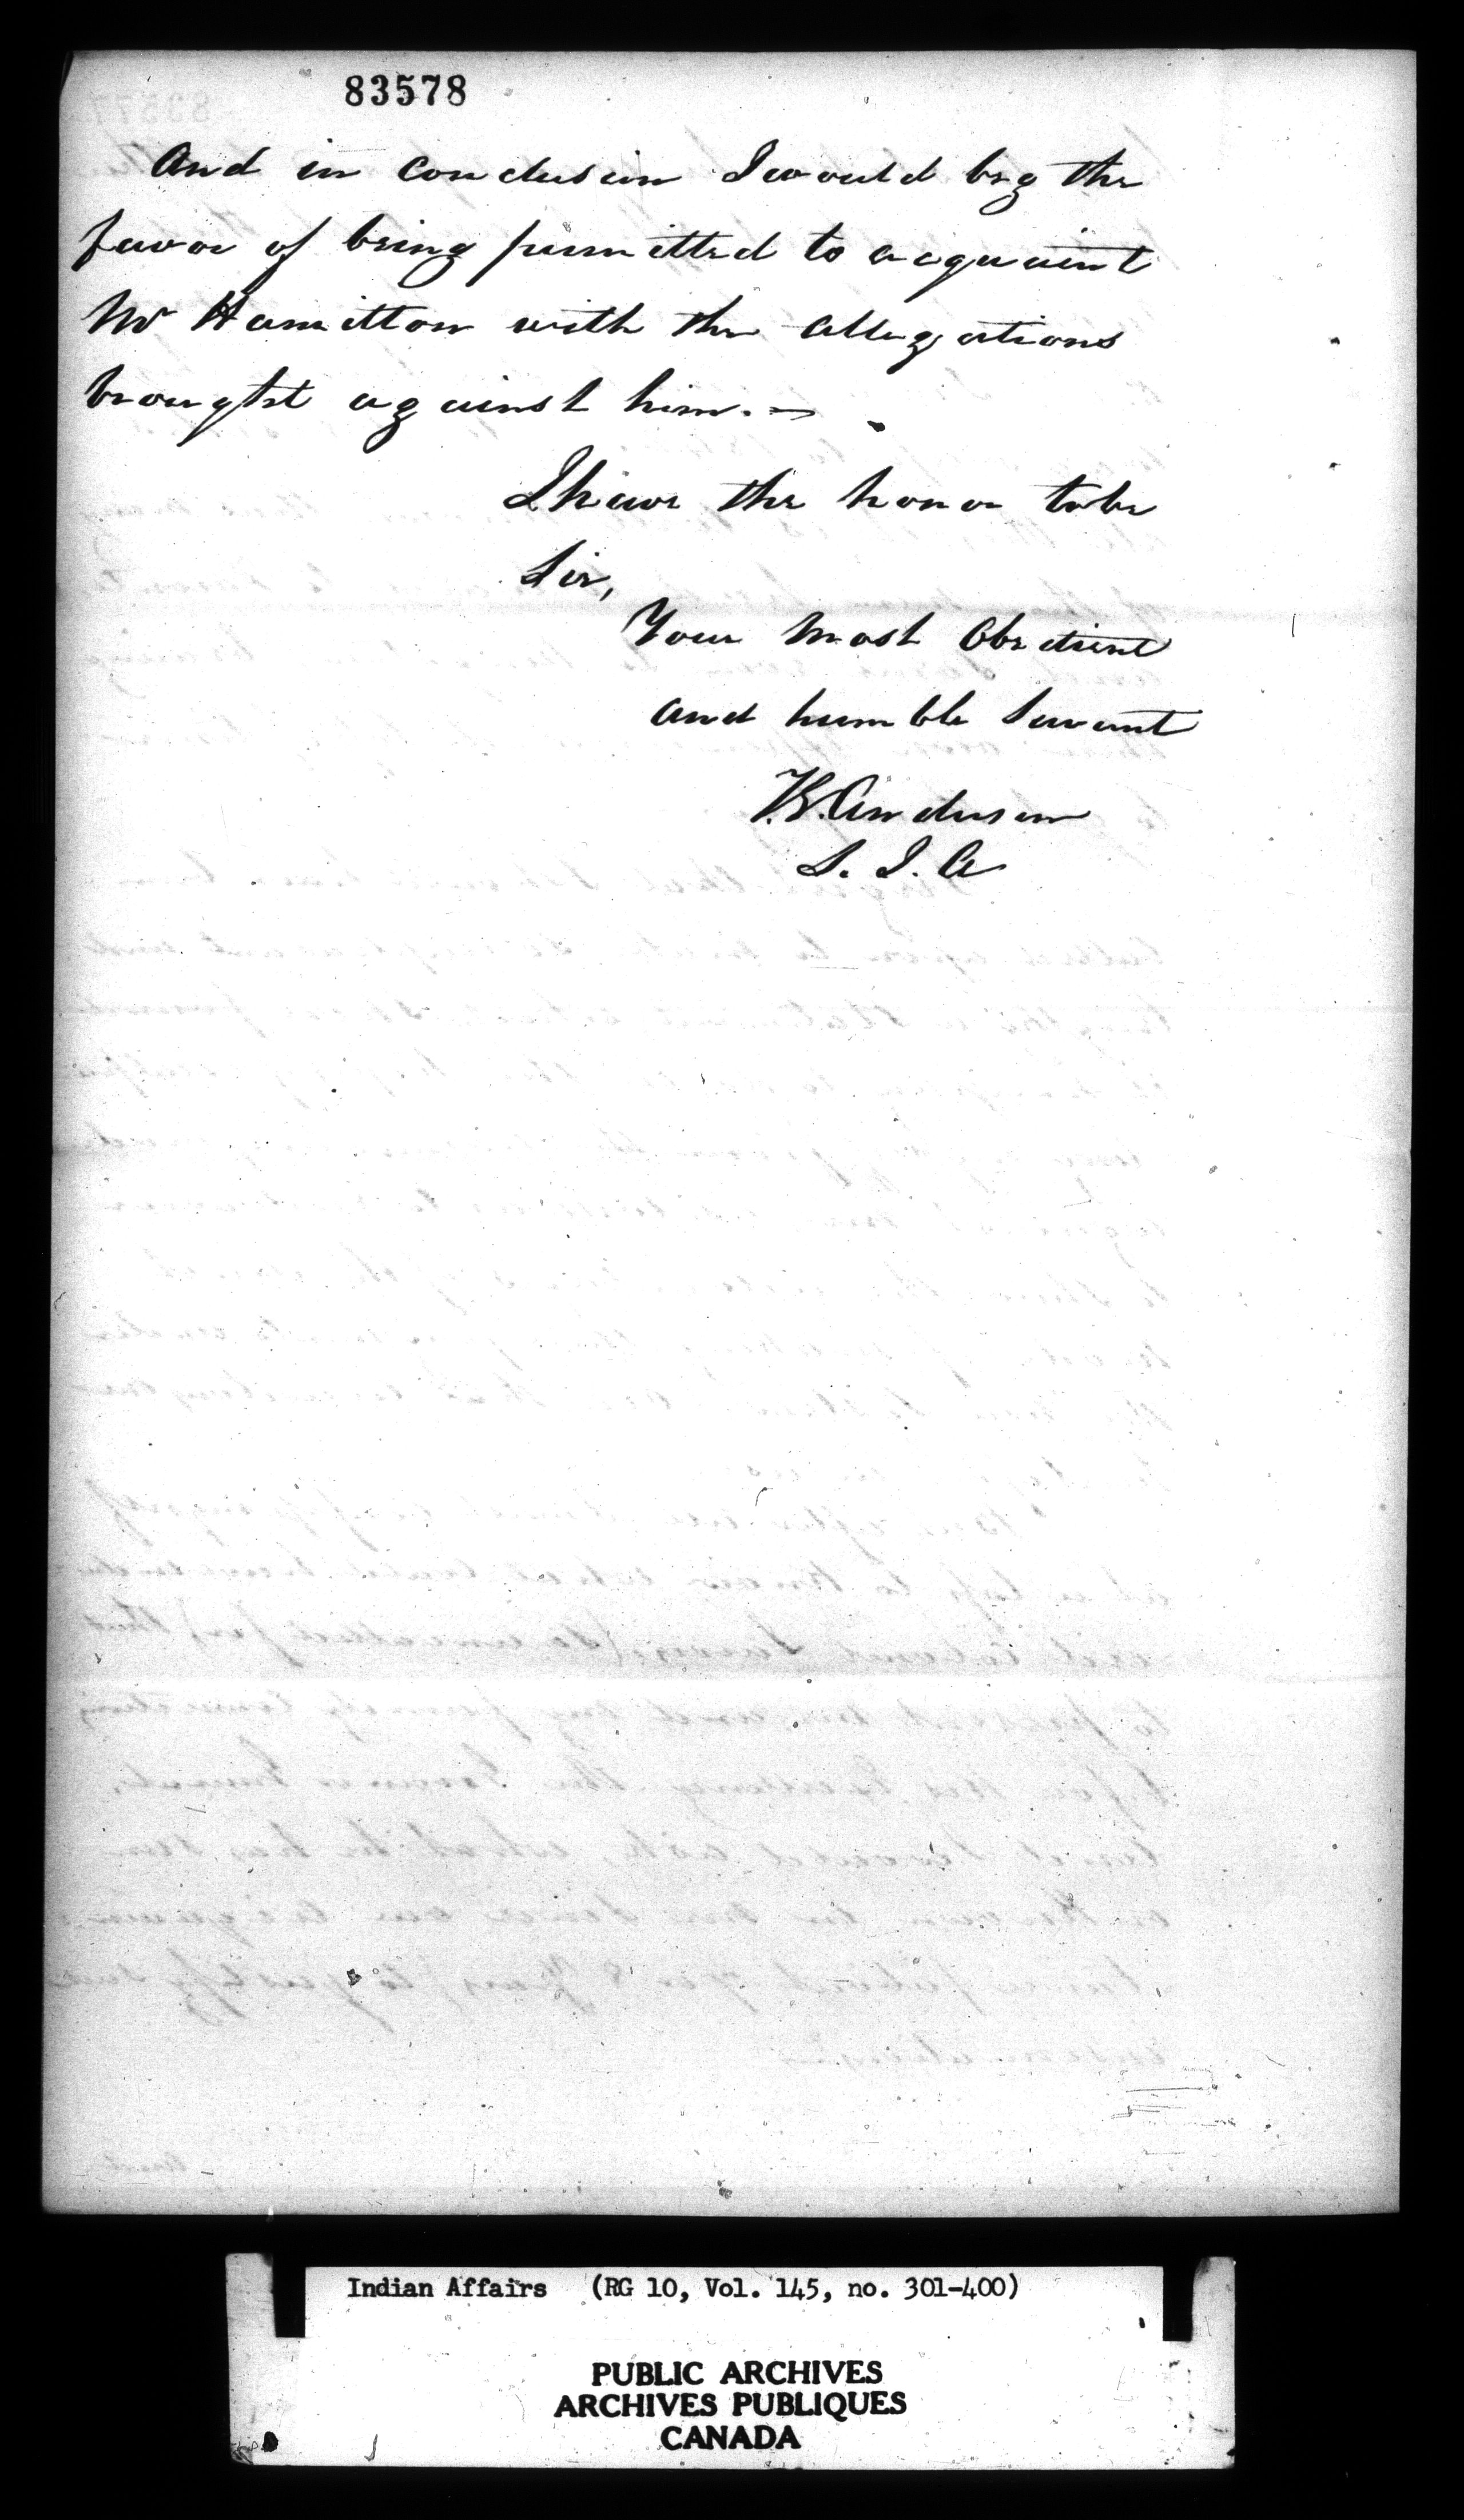 83578
And in conclusion I would beg the
favor of being permitted to acquaint
Mr Hamilton with the allegations
brought against him. —
I have the honor to be
Sir,
Your most Obedient
and humble Servant
Anderson
S. I. A
Indian Affairs (RG 10, Vol. 145, no. 301-400)
PUBLIC ARCHIVES
ARCHIVES PUBLIQUES
CANADA